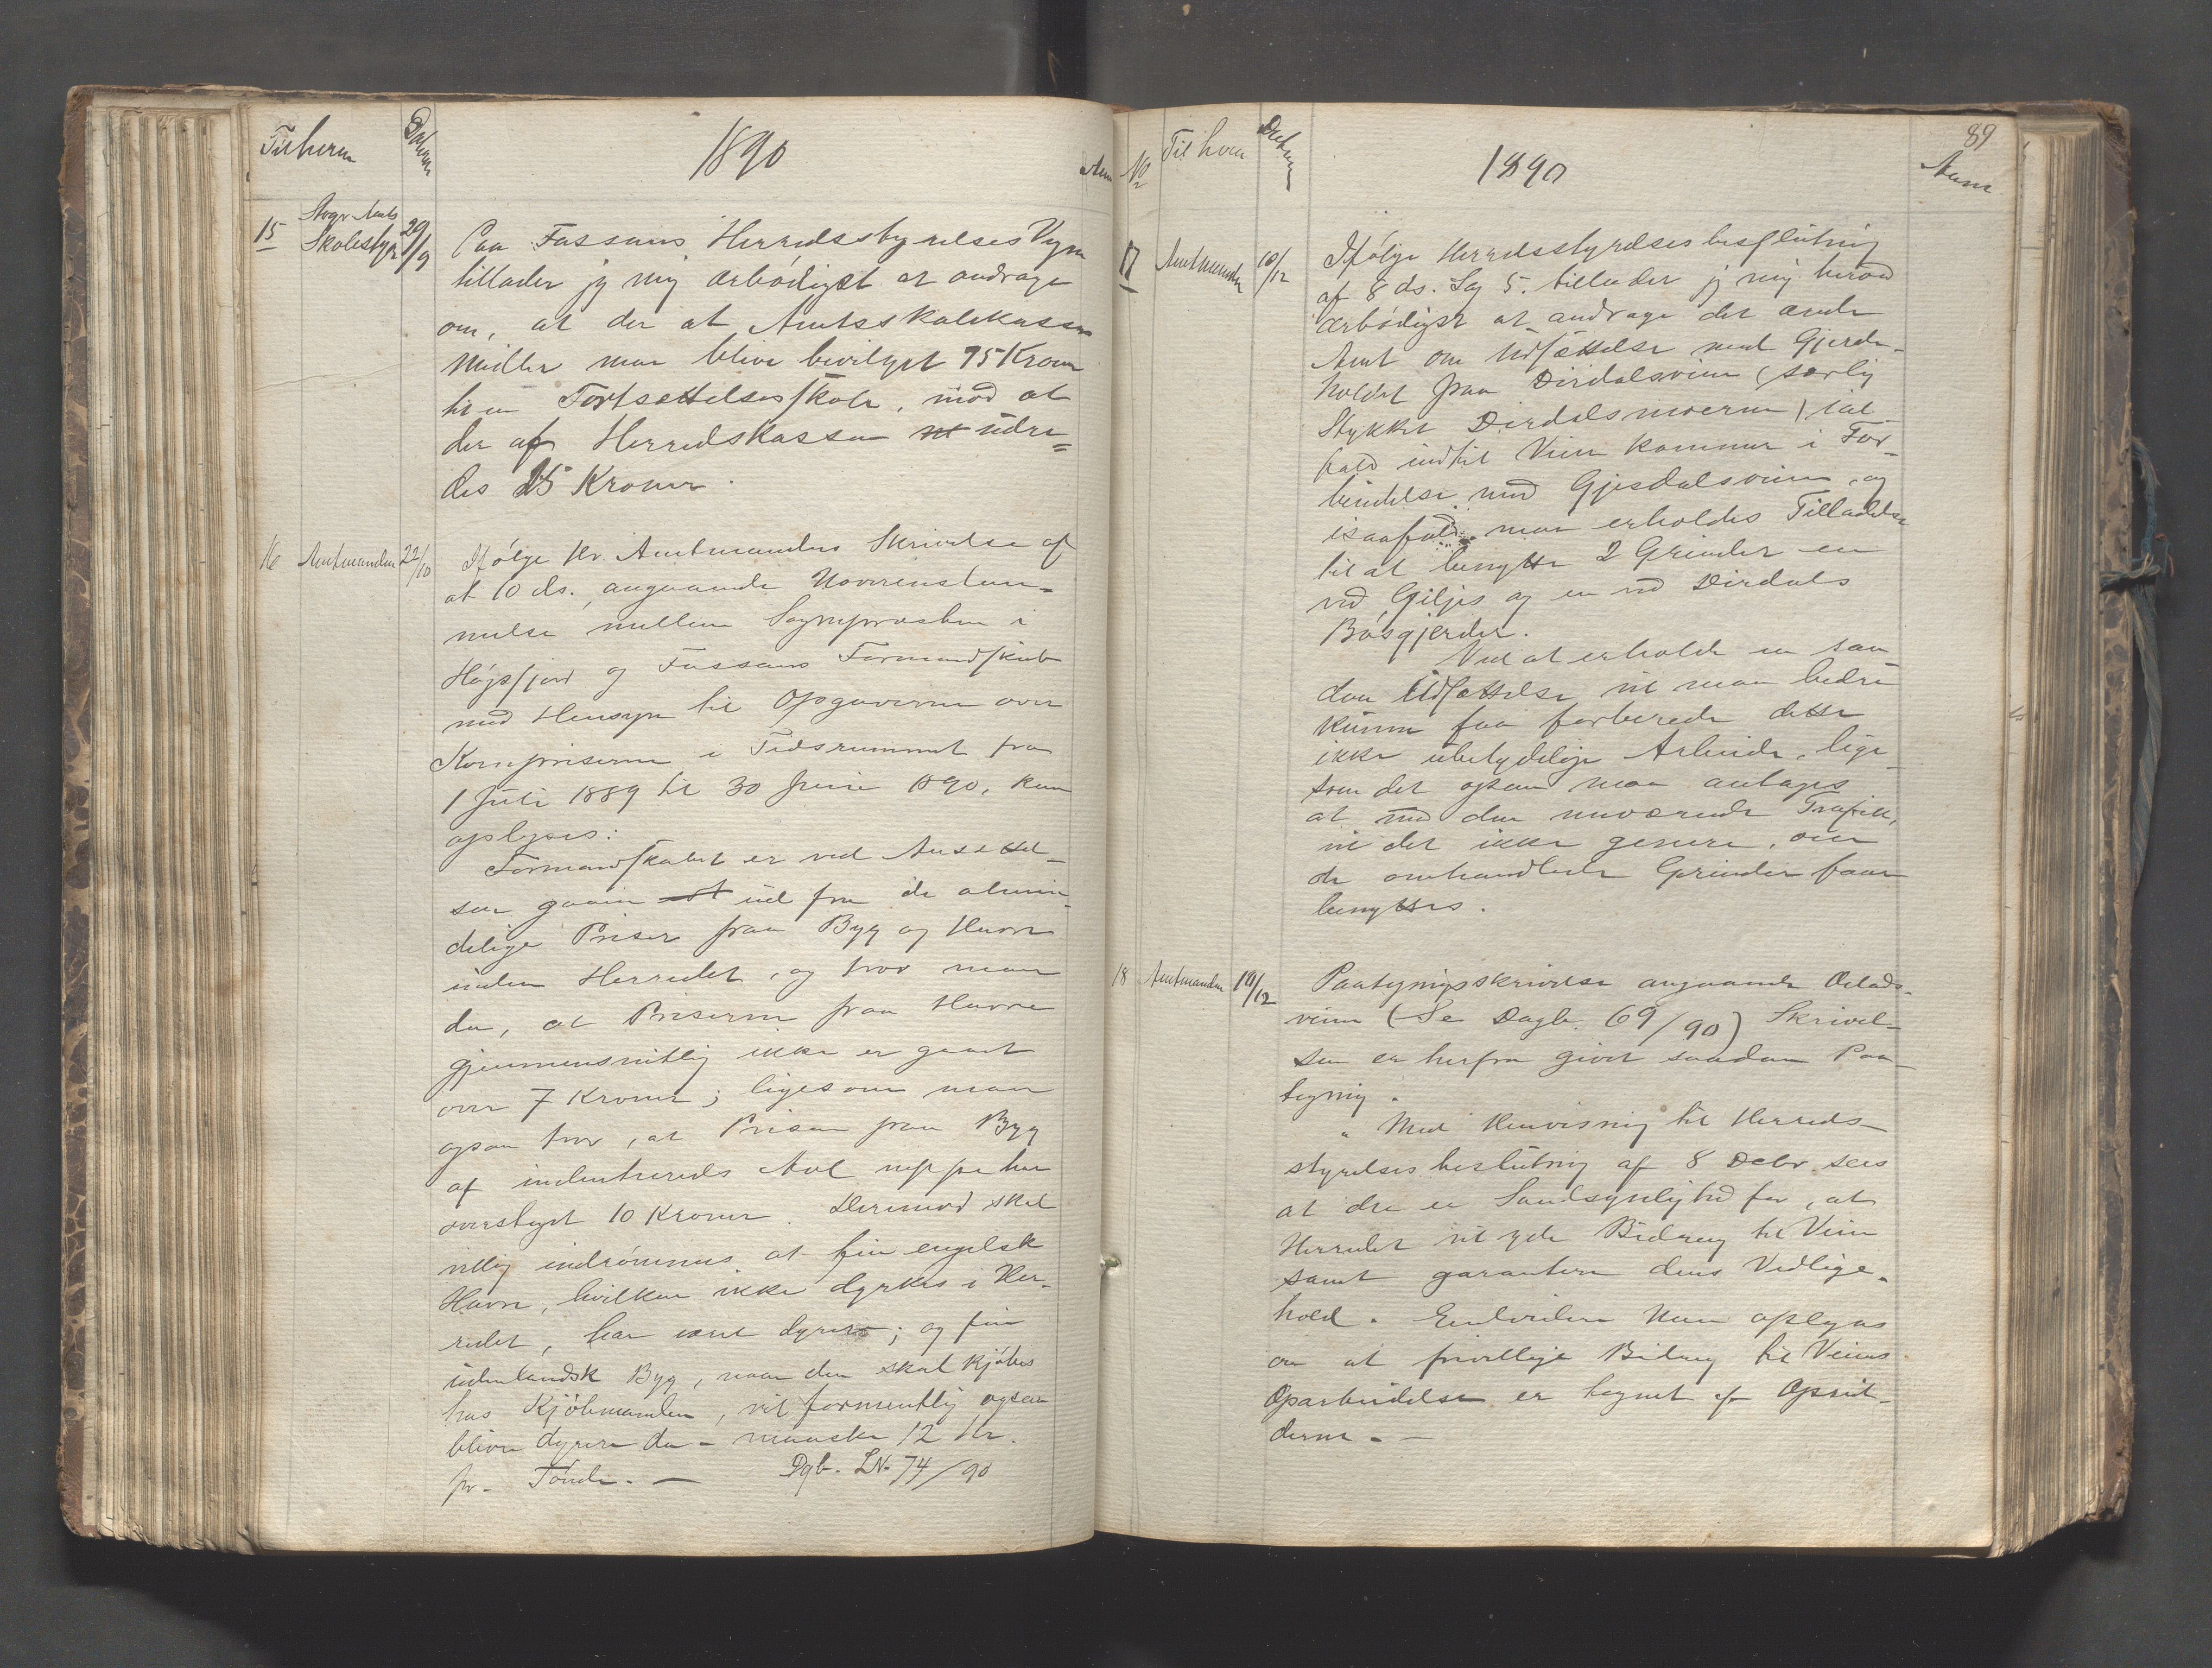 Til hvem Datum 1890 Anm
15 Stav. Amts Skolestyr 29/9
Paa Fossans Herredsstyrelses Vegne
tillader jeg mig ærbödigst at andrage
om, at der at Amtsskolekassens
Midler maa blive bevilget 75 Kroner
til en Fortsættelsesskole, mod at
der af Herredskassen udre=
des 25 Kroner.
16 Amtmanden 22/10
Ifölge Hr. Amtmandens Skrivelse af
at 10 ds. angaaende Uoverenstem-
melse mellem Sognepræsten i
Högsfjord og Fossans Formandskab
med Hensyn til Opgaverne over
Kornpriserne i Tidsrummet fra
1 Juli 1889 til 30 Juni 1890, kan
oplyses:
Formandskabet er ved Ansættel-
sen gaaen ud fra de almin-
delige Priser paa Byg og Havre
inden Herredet, og tror man
da, at Priserne paa Havre
gjennemsnitlig ikke er gaaet
over 7 Kroner; ligesom man
ogsaa tror, at Prisen paa Byg
af indenherreds Avl neppe har
oversteget 10 Kroner. Derimod skal
villig indrömmes at fin engelsk
Havre, hvilken ikke dyrkes i Her-
redet, har været dyrere; og fin
udenlandsk Byg, naar den skal kjöbes
hos Kjöbmanden, vil formentlig ogsaa
blive dyrere da - maaske 12 Kr.
pr. Tönde. — Dgb. LN. 74/90
89
No Til hvem Datum 1890 Anm
17 Amtmanden 10/12
Ifölge Herredsstyrelsesbeslutning
af 8 ds. Sag 5. tillader jeg mig herved
ærbödigst at andrage det ærede
Amt om Udsættelse med Gjerde-
holdet paa Dirdalsveien (særlig
Stykket Dirdalsmoerne) ial-
fald indtil Veien kommer i For-
bindelse med Gjesdalsveien, og
isaafald maa erholdes Tilladelse
til at benytte 2 Grinder en
ved Giljes og en ved Dirdals
Bösgjerder.
Ved at erholde en saa
dan Udsættelse vil man bedre
kunne faa forberede dette
ikke ubetydelige Arbeide, lige-
som det ogsaa maa antages
at med den nuværende Trafik,
vil det ikke genere, om
de omhandlede Grinder faar
benyttes.
18 Amtmanden 19/12
Paategningsskrivelse angaaende Ölads-
veien (Se Dagb. 69/90) Skrivel-
sen er herfra givet saadan Paa-
tegning.
"Med Henvisning til Herreds-
styrelses beslutning af 8 Decbr. sees
at der er Sandsynlighed for, at
Herredet vil yde Bidrag til Veien
samt garantere dens Vedlige-
hold. Endvidere kan oplyses
om at frivillige Bidrag til Veiens
Oparbeidelse er tegnet af Opsid-
derne. —